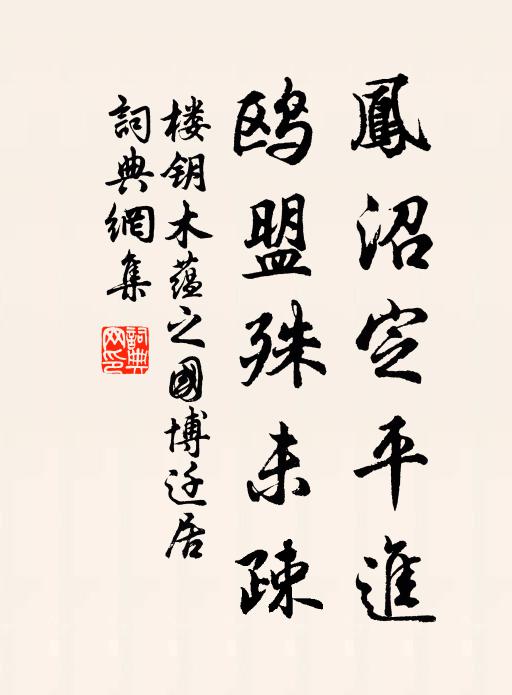 鳳沼定平進
鸥盟殊未疎
楼钥木蕴之國博迁居
詞典網集
詞典网印